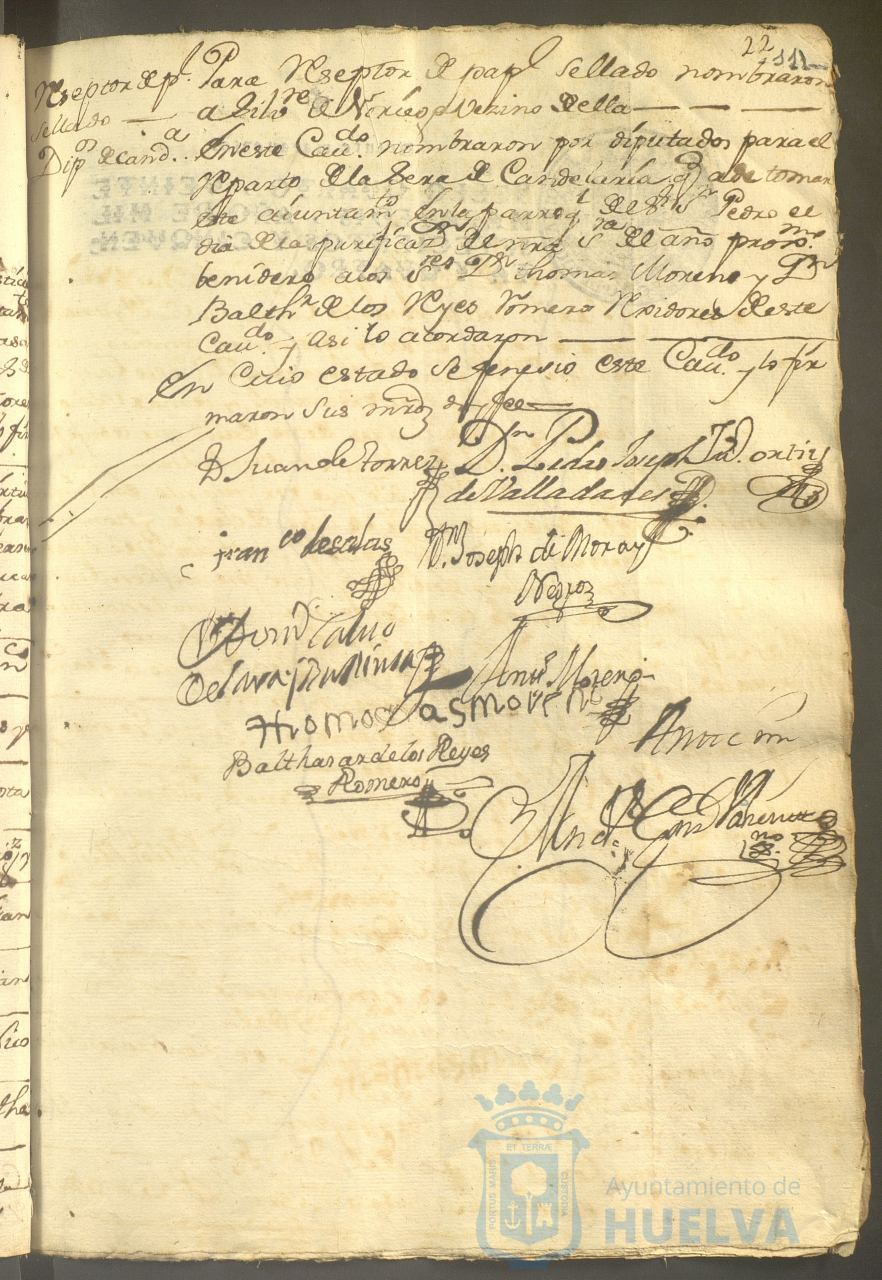 22
111
Reseptor de pl.
sellado —
Dipos. de canda..
Para Reseptor de papl sellado nombraron
a Silvre de Noriego Vezino de ella — — —
En este Cavdo. nombraron por diputados para el
Reparto de la Sera de Candelaria q a de tomar
este aiuntamto en la parroql de Sr Sn Pedro el
dia de la purificaon de nra Sra de año proxmo.
benidero a los Sres Dn thomas Moreno y Dn
Balthr de los Reyes Romero Rexidores de este
Cavdo. y asi lo acordaron — —
En Cuio estado se fenesio este Cavdo. y lo fir
maron sus mrdz doy fee —
D Juan de torrez
Dn Pedro Joseph ortiz
de Valladares
franco de salas
Dn. Joseph de Mora y
Negro
Anto Moreno
thomas moreno
Balthasar de los Reyes
Romero
Ante mi
ET TERRÆ
PORTUS MARIS
CUSTODIA
Ayuntamiento de
HUELVA